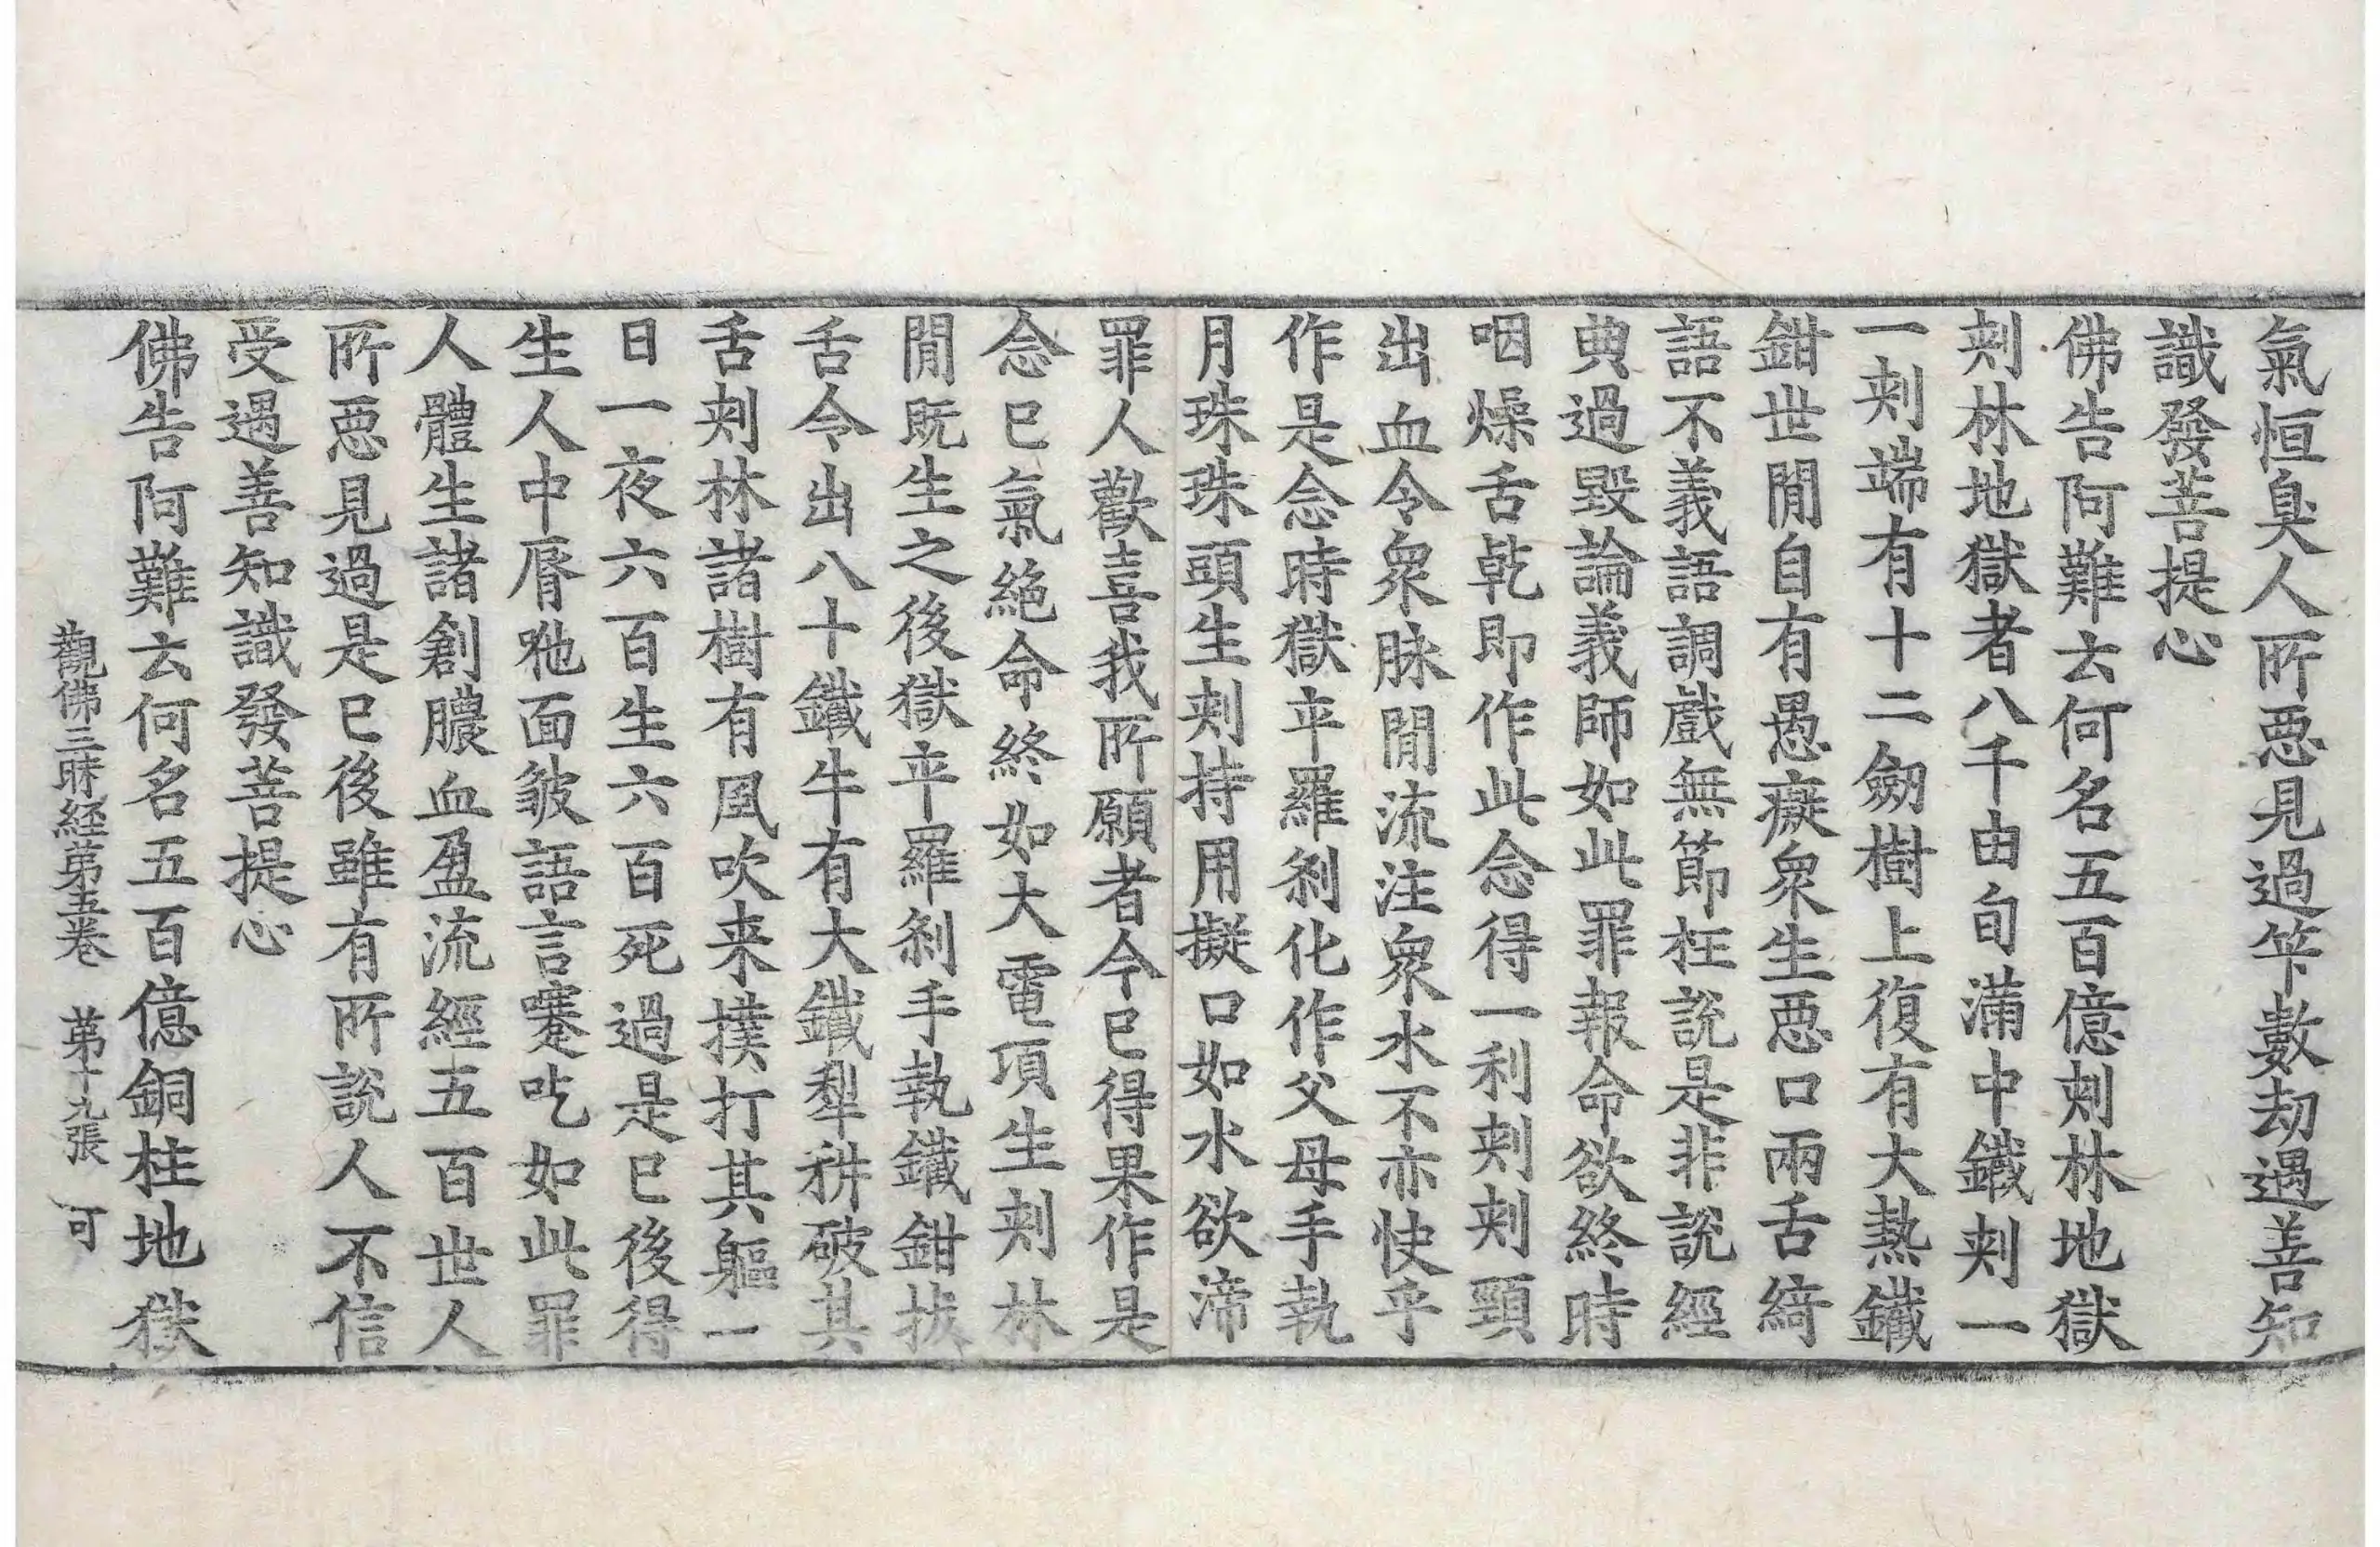 氣恒臭人所惡見過筭數劫遇善知
識發菩提心
佛告阿難云何名五百億刺林地獄
刺林地獄者八千由旬滿中鐵刺一
一刺端有十二劒樹上復有大熱鐵
鉗世閒自有愚癡衆生惡口兩舌綺
語不義語調戲無節枉說是非說經
典過毀論義師如此罪報命欲終時
咽燥舌乾即作此念得一利刺刺頸
出血令衆脉閒流注衆水不亦快乎
作是念時獄卒羅刹化作父母手執
月珠珠頭生刺持用擬口如水欲渧
罪人歡喜我所願者今已得果作是
念已氣絶命終如大電項生刺林
閒旣生之後獄卒羅刹手執鐵鉗拔
舌令出八十鐵牛有大鐵犁耕破其
舌刺林諸樹有風吹来撲打其軀一
日一夜六百生六百死過是已後得
生人中脣哆面皺語言謇吃如此罪
人體生諸創膿血盈流經五百世人
所惡見過是已後雖有所說人不信
受遇善知識發菩提心
佛告阿難云何名五百億銅柱地獄
觀佛三昧経第五卷 第十九張 可